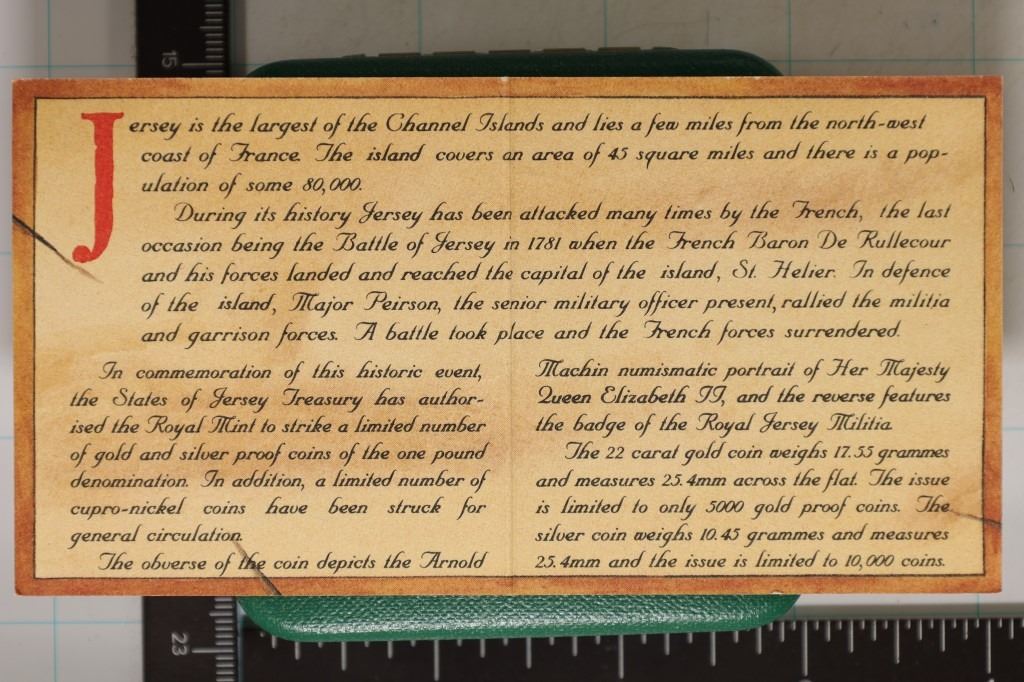 Jersey is the largest of the Channel Islands and lies a few miles from the north-west
coast of France. The island covers an area of 45 square miles and there is a pop-
ulation of some 80,000.
During its history Jersey has been attacked many times by the French, the last
occasion being the Battle of Jersey in 1781 when the French Baron De Rullecour
and his forces landed and reached the capital of the island, St. Helier. In defence
of the island, Major Peirson, the senior military officer present, rallied the militia
and garrison forces. A battle took place and the French forces surrendered.
In commemoration of this historic event,
the States of Jersey Treasury has author-
ised the Royal Mint to strike a limited number
of gold and silver proof coins of the one pound
denomination. In addition, a limited number of
cupro-nickel coins have been struck for
general circulation.
The obverse of the coin depicts the Arnold
Machin numismatic portrait of Her Majesty
Queen Elizabeth II, and the reverse features
the badge of the Royal Jersey Militia.
The 22 carat gold coin weighs 17.55 grammes
and measures 25.4mm across the flat. The issue
is limited to only 5000 gold proof coins. The
silver coin weighs 10.45 grammes and measures
25.4mm and the issue is limited to 10,000 coins.
15
23